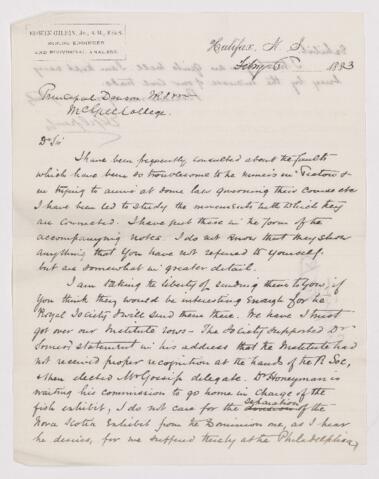 EDWIN GILPIN, Jr., A.M., F.G.S.
MINING ENGINEER
AND PROVINCIAL ANALYST.
Halifax, N. S.
Feby 5th 1883
Principal Dawson
McGill College.
Dr Sir
I have been frequently consulted about the faults
which have been so troublesome to the miners in Pictou &
in trying to arrive at some law governing their course etc
I have been led to study the movements with which they
are connected. I have put these in the form of the
accompanying notes. I do not know that they show
anything that you have not referred to yourself
but are somewhat in greater detail.
I am taking the liberty of sending them to you, if
you think they would be interesting enough for the
Royal Society I will send them there. We have I trust
got over our Institute rows - The Society supported Dr
Somers statement in his address that the Institute had
not received proper recognition at the hands of the R. Soc,
& then elected Mr Gossip delegate. Dr Honeyman is
waiting his commission to go home in charge of the
fish exhibit, I do not care for the separation of the
Nova Scotia Exhibit from the Dominion one, as I hear
he desires, for we suffered thereby at the Philadelphia